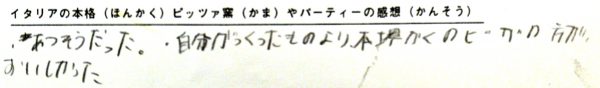 イタリアの本格（ほんかく）ピッツァ窯（かま）やパーティーの感想（かんそう）
・あつそうだった。・自分がつくったものより、本場がくのピザの方が、
おいしかった